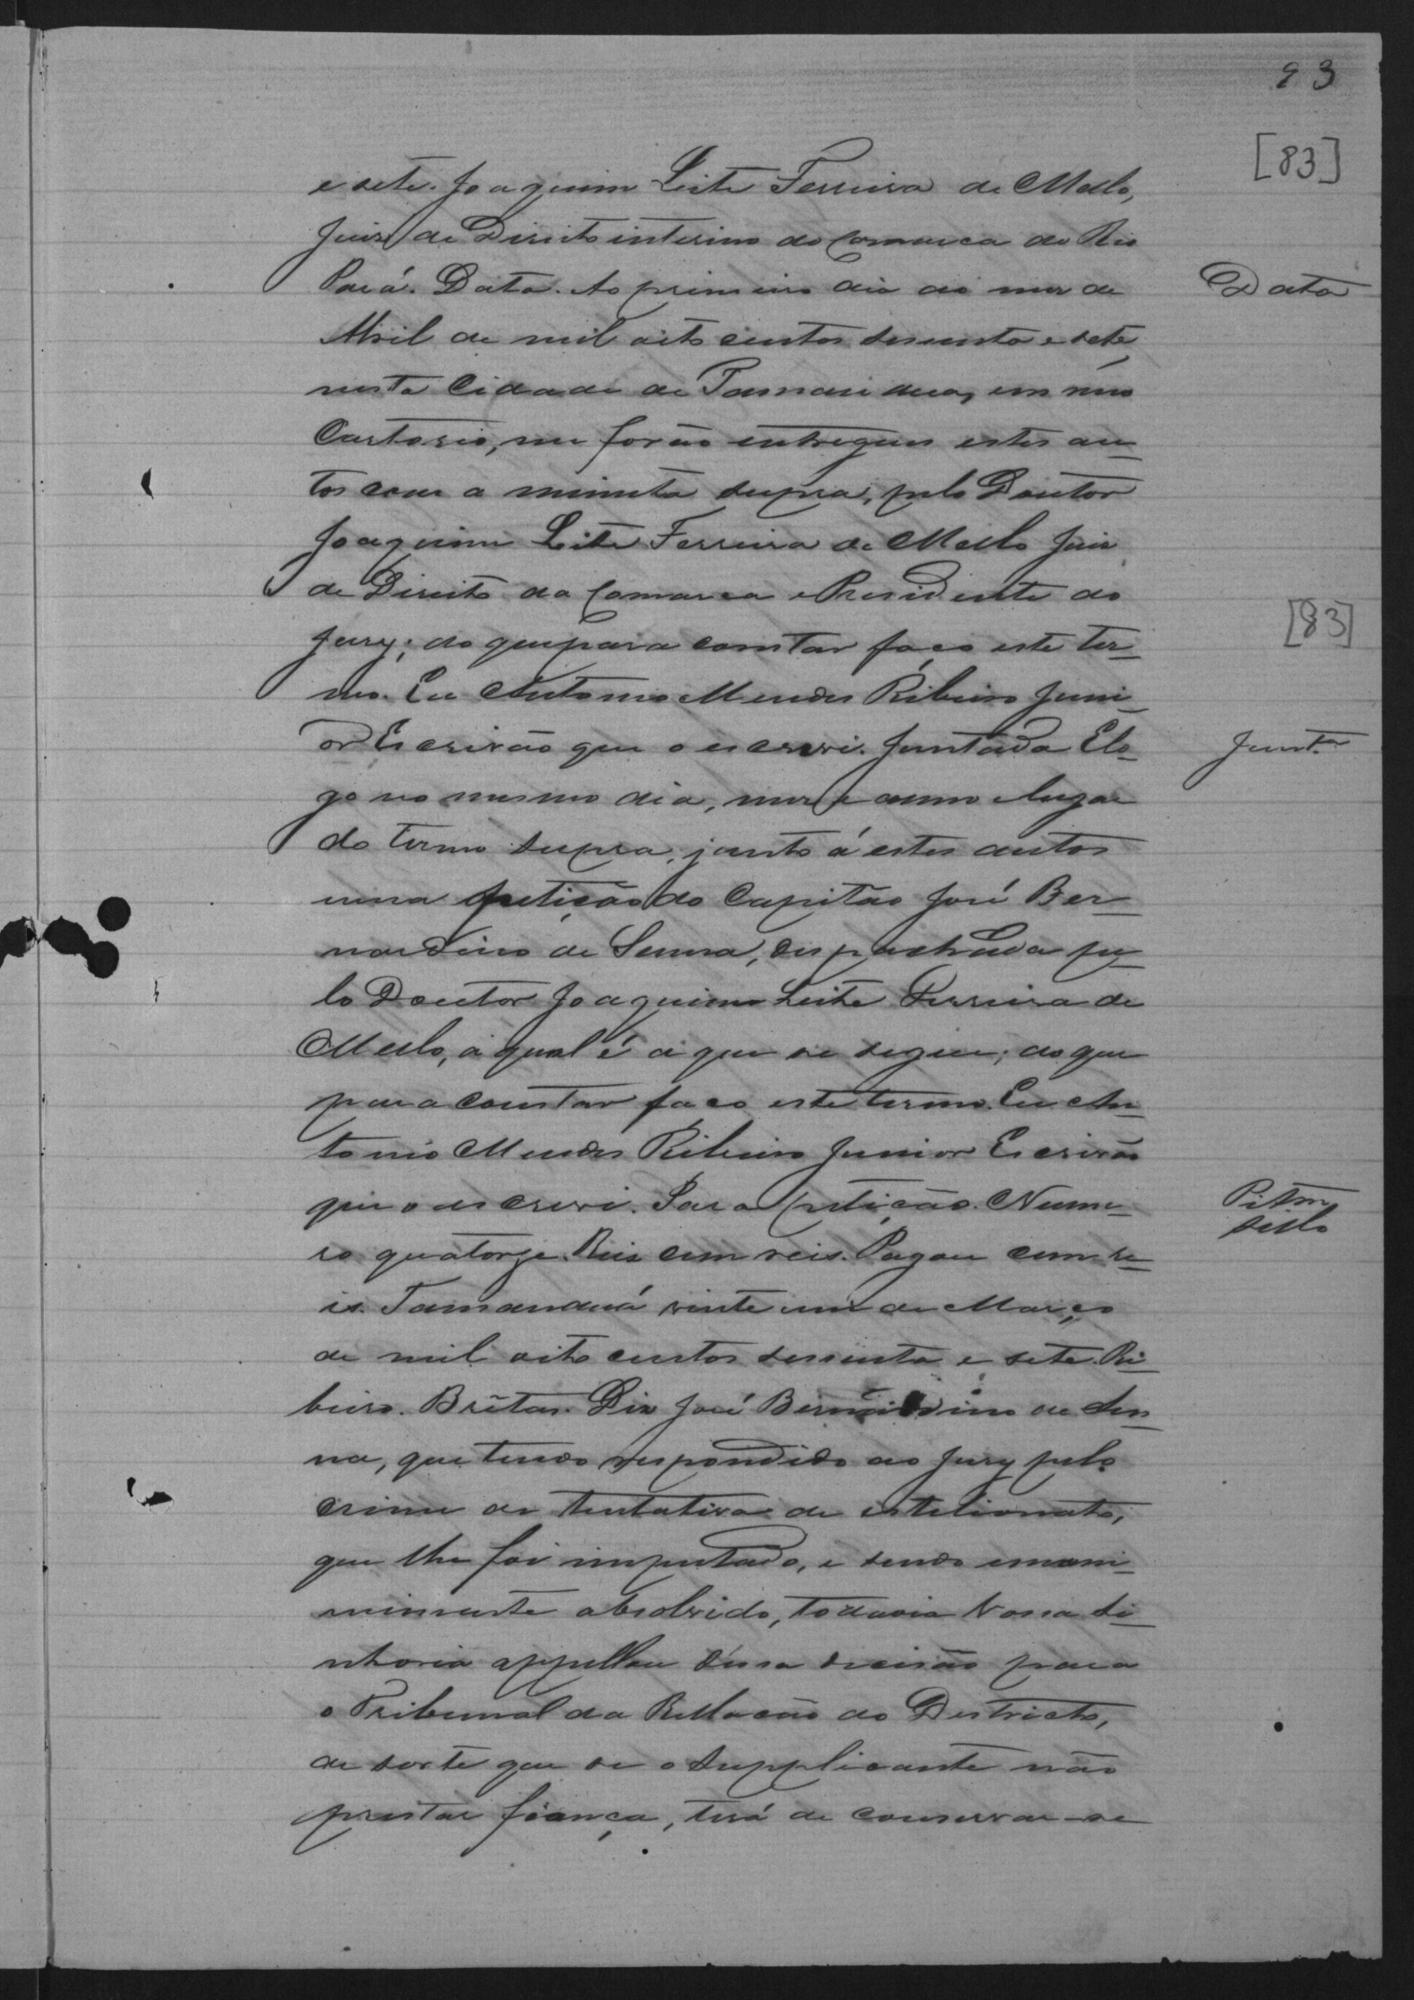 93
[83]
e sete. Joaquim Leite Ferreira de Mello,
Juiz de Direito interino da Comarca do Rio
Pará. Data. Ao primeiro dia do mez de
Data
Abril de mil oito centos sessenta e sete
nesta Cidade de Tamanduá, em meu
Cartorio, me forão entregues estes au-
tos com a minuta supra, pelo Doutor
Joaquim Leite Ferreira de Mello Juiz
de Direito da Comarca e Presidente do
[83]
Jury; do que para constar faço este ter-
mo. Eu Antonio Mendes Ribeiro Juni-
or Escrivão que o escrevi. Juntada E lo-
Junt.ª
go no mesmo dia, mez e anno e lugar
do termo supra, junto á estes autos
uma petição do Capitão José Ber-
nardino de Senna, despachada pe-
lo Doutor Joaquim Leite Ferreira de
Mello, a qual é a que se segue; do que
para constar faço este termo. Eu An-
tonio Mendes Ribeiro Junior Escrivão
que o escrevi. Para petição. Nume-
Pitm
sello
ro quatorze. Reis cem reis. Pagou cem re-
is. Tamanduá vinte um de Março
de mil oito centos sessenta e sete. Ri-
beiro. Brêtas. Diz José Bernardino de Sen-
na, que tendo respondido ao Jury pelo
crime de tentativa de estelionato,
que lhe foi imputado, e sendo unani-
mimente absolvido, todavia Vossa Se-
nhoria appellou dessa decisão para
o Tribunal da Rellação do Districto,
de sorte que se o Supplicante não
prestar fiança, terá de conservar-se